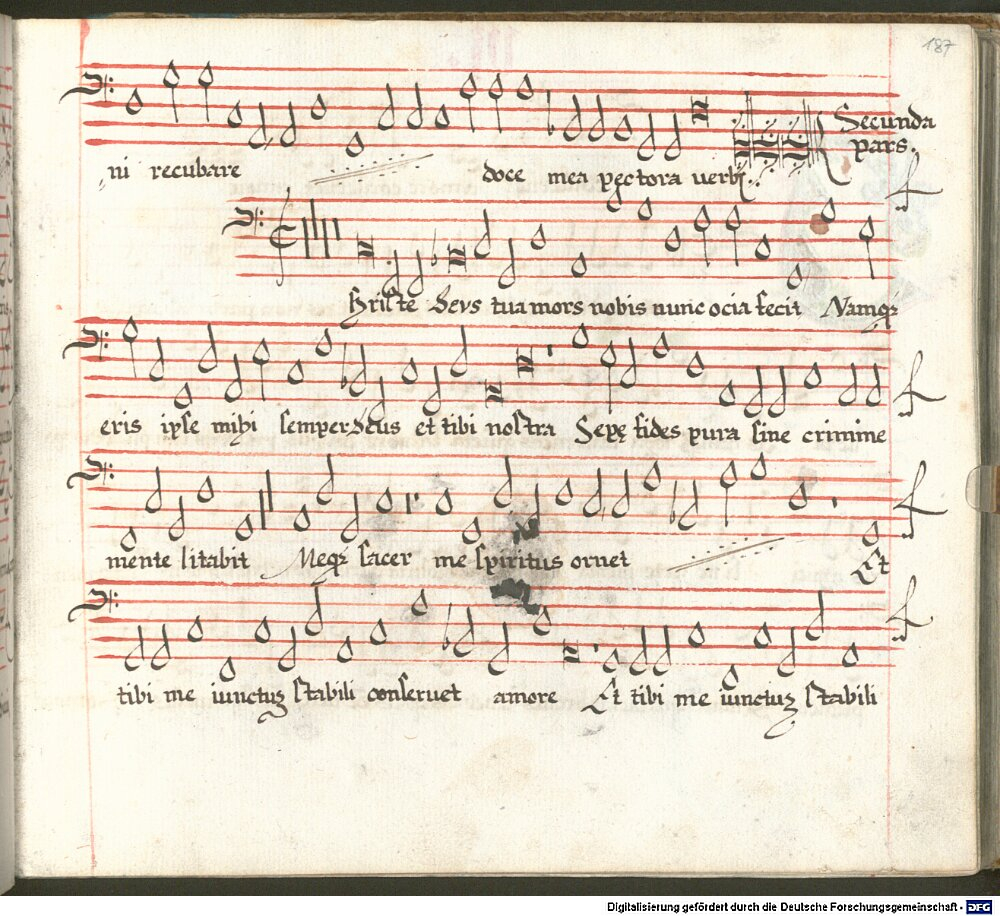 187
Secunda
pars.
ni recubare doce mea pectora uerbi
Hriste Deus tua mors nobis nunc ocia fecit Namqȝ
eris ipse mihi semper Deus et tibi nostra Sepę fides pura sine crimine
mente litabit Meqȝ sacer me spiritus ornet Et
tibi me iunctuȝ stabili conseruet amore Et tibi me iunctuȝ stabili
Digitalisierung gefördert durch die Deutsche Forschungsgemeinschaft - DFG